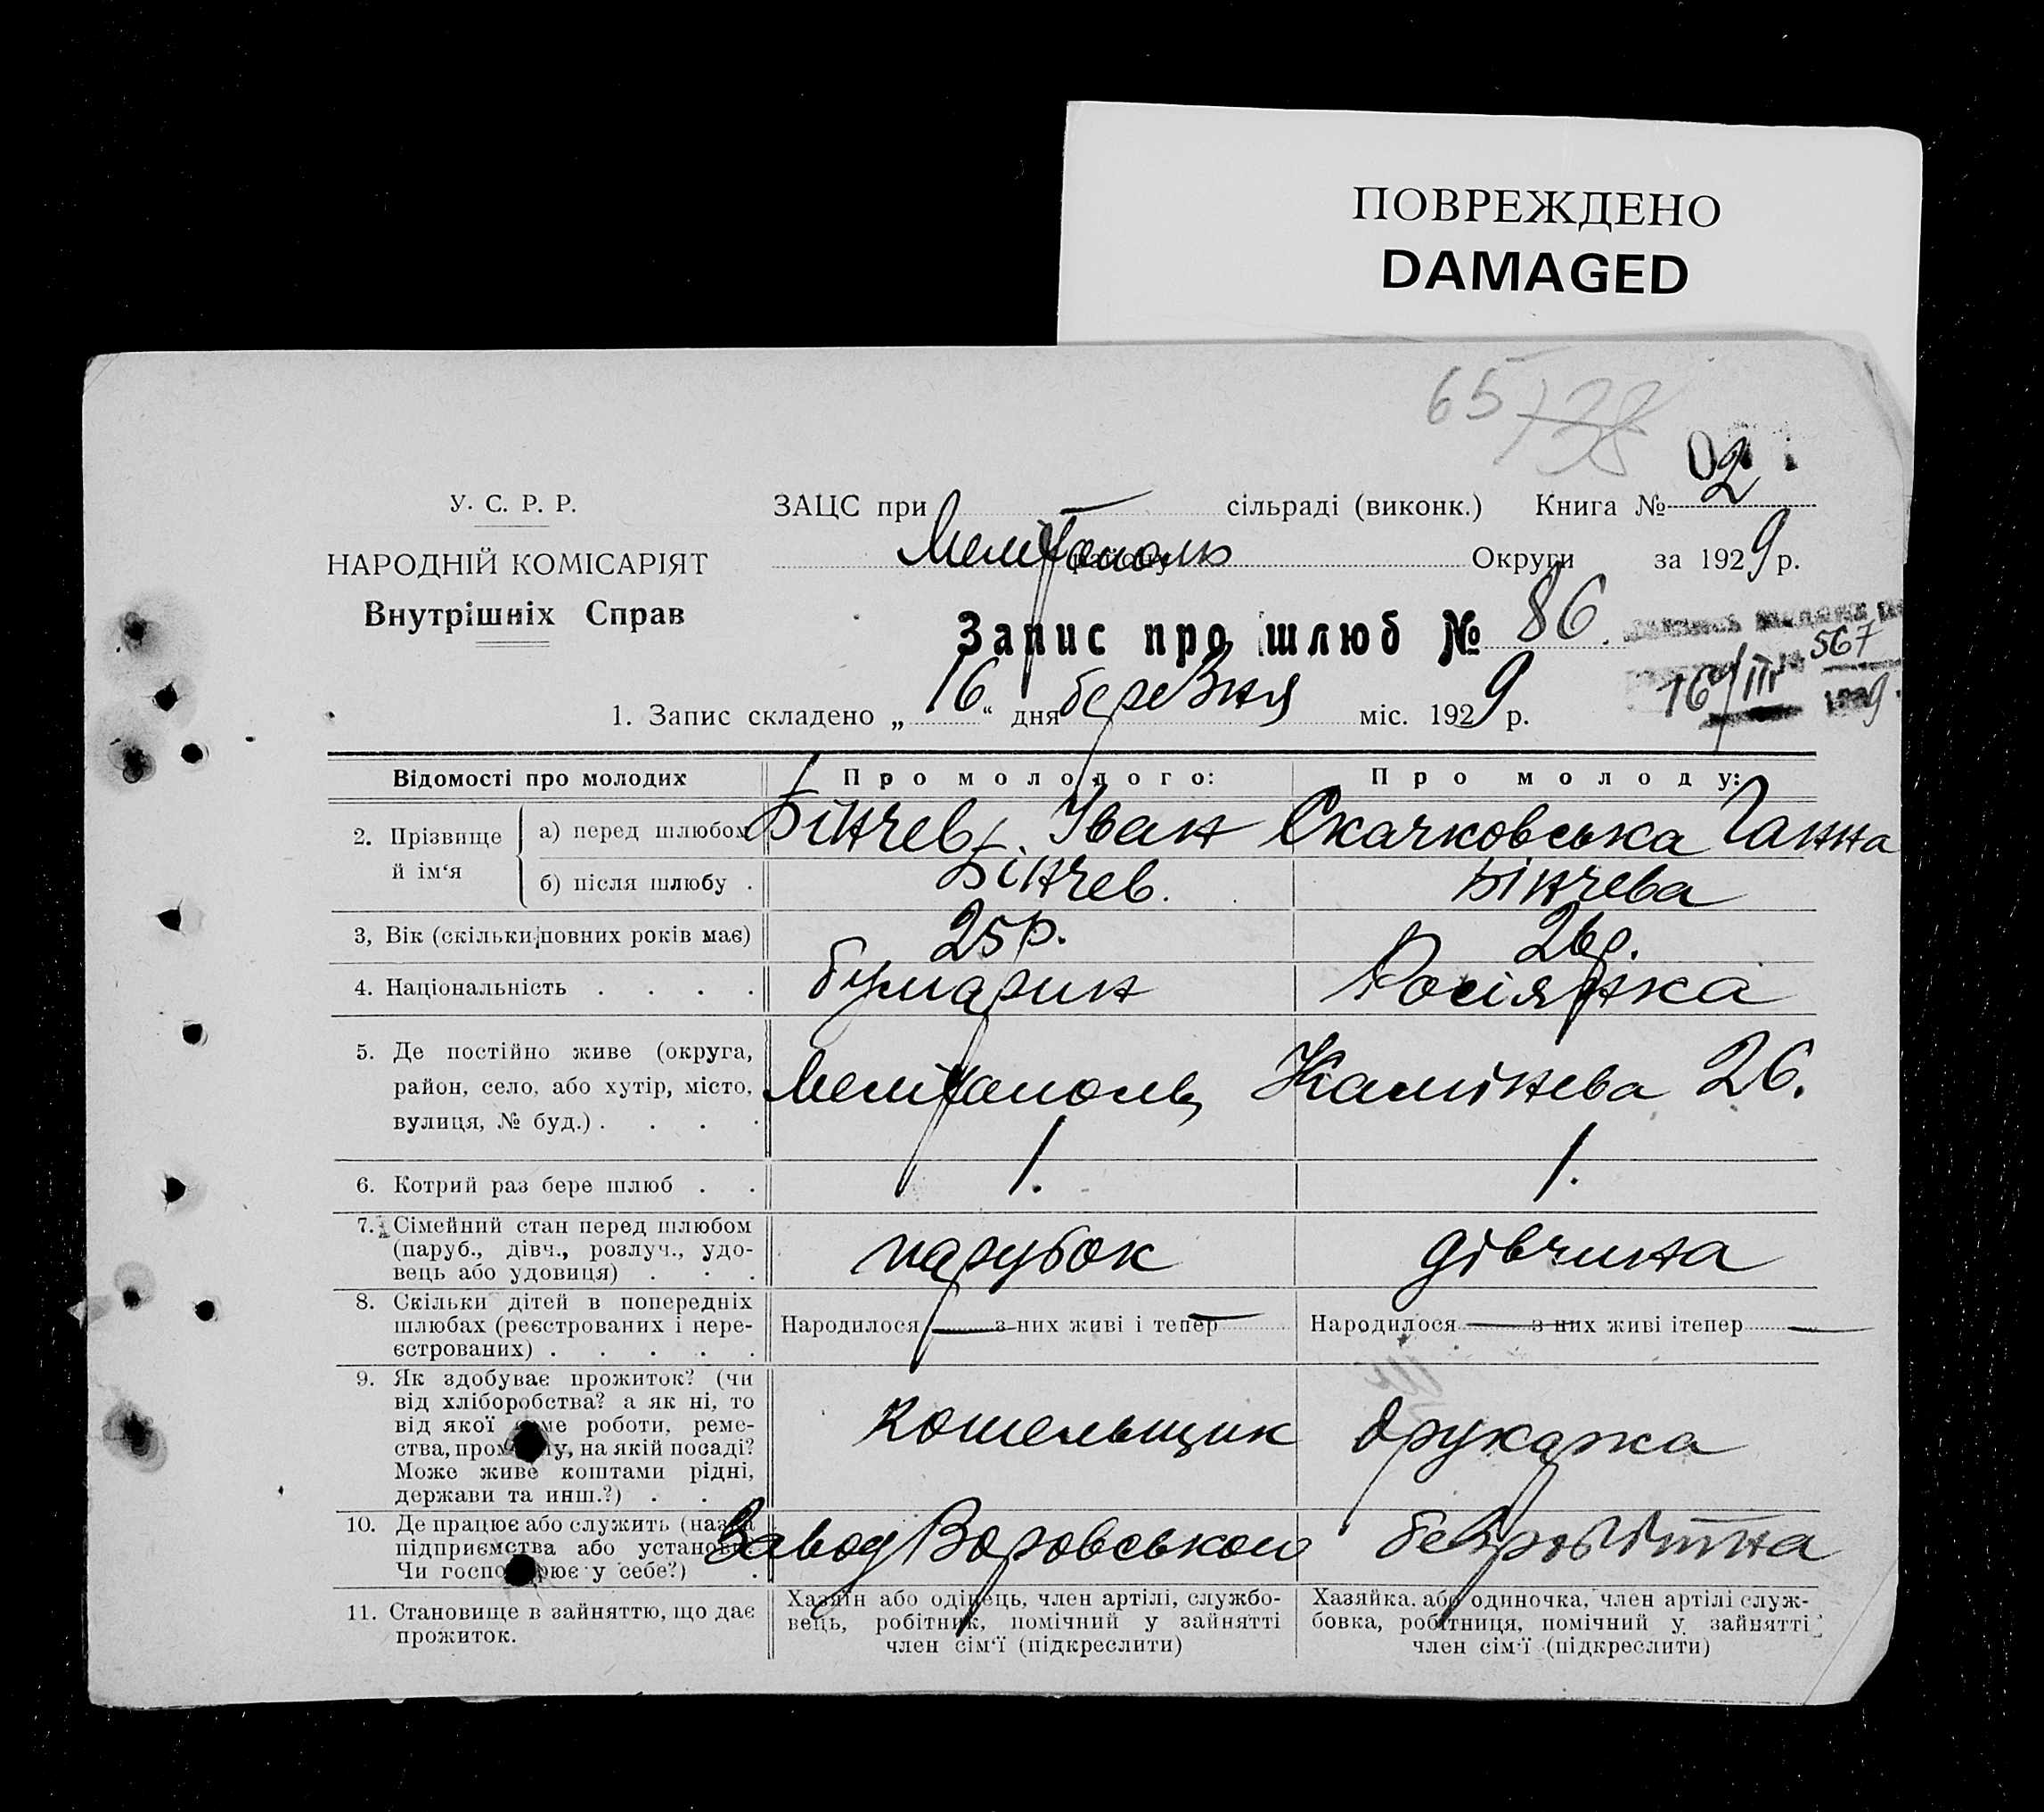 ПОВРЕЖДЕНО
DAMAGED
65 738
У. С. Р. Р.
ЗАЦС при сільраді (виконк.) Книга № 2
НАРОДНІЙ КОМІСАРІЯТ
Мелітополь району Округи за 1929 р.
Внутрішніх Справ
Запис про шлюб № 86.
567
16/III 1929
1. Запис складено „16“ дня березня міс. 1929 р.
Відомості про молодих Про молодого: Про молоду:
2. Прізвище й ім‘я
а) перед шлюбом Бінчев, Іван Скачковська Ганна
б) після шлюбу . Бінчев. Бінчева
3, Вік (скільки повних років має) 25 р. 26 р.
4. Національність . . . . булгарин Росіянка
5. Де постійно живе (округа,
район, село, або хутір, місто,
вулиця, № буд.) . . . .
Мелітополь, Камінева 26.
6. Котрий раз бере шлюб . . 1. 1.
7. Сімейний стан перед шлюбом
(паруб., дівч., розлуч., удо-
вець або удовиця) . . .
парубок дівчина
8. Скільки дітей в попередніх
шлюбах (реєстрованих і нере-
єстрованих) . . . . .
Народилося — з них живі і тепер — Народилося — з них живі ітепер —
9. Як здобуває прожиток? (чи
від хліборобства? а як ні, то
від якої саме роботи, реме-
ства, промислу, на якій посаді?
Може живе коштами рідні,
держави та инш.?) . .
котельщик друкарка
10. Де працює або служить (назва
підприємства або установи.
Чи господарює у себе?) .
Завод Воровського безробітна
11. Становище в зайняттю, що дає
прожиток.
Хазяїн або одінець, член артілі, службо-
вець, робітник, помічний у зайнятті
член сім‘ї (підкреслити)
Хазяйка, або одиночка, член артілі служ-
бовка, робітниця, помічний у зайнятті
член сім‘ї (підкреслити)